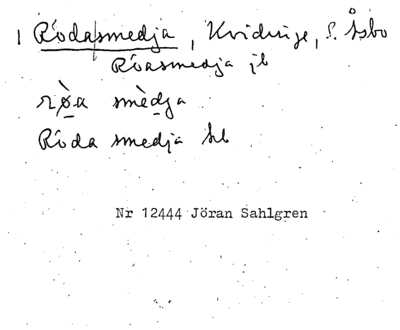 1 Rödasmedja, Kvidinge, S. Åsbo
Röasmedja jb
rø̀a smèdja
Röda smedja hb
Nr 12444 Jöran Sahlgren